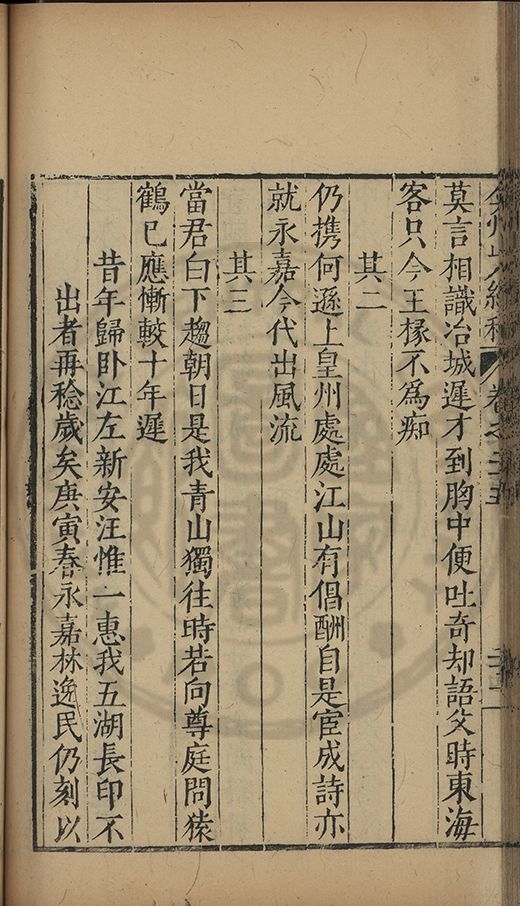 弇州山人續稿 卷之二十五
莫言相識冶城遲才到胸中便吐奇却語父時東海
客只今王掾不爲痴
其二
仍携何遜上皇州處處江山有倡酬自是宦成詩亦
就永嘉今代出風流
其三
當君白下趨朝日是我青山獨往時若向尊庭問猿
鶴已應慚較十年遲
昔年歸卧江左新安汪惟一惠我五湖長印不
出者再稔歲矣庚寅春永嘉林逸民仍刻以